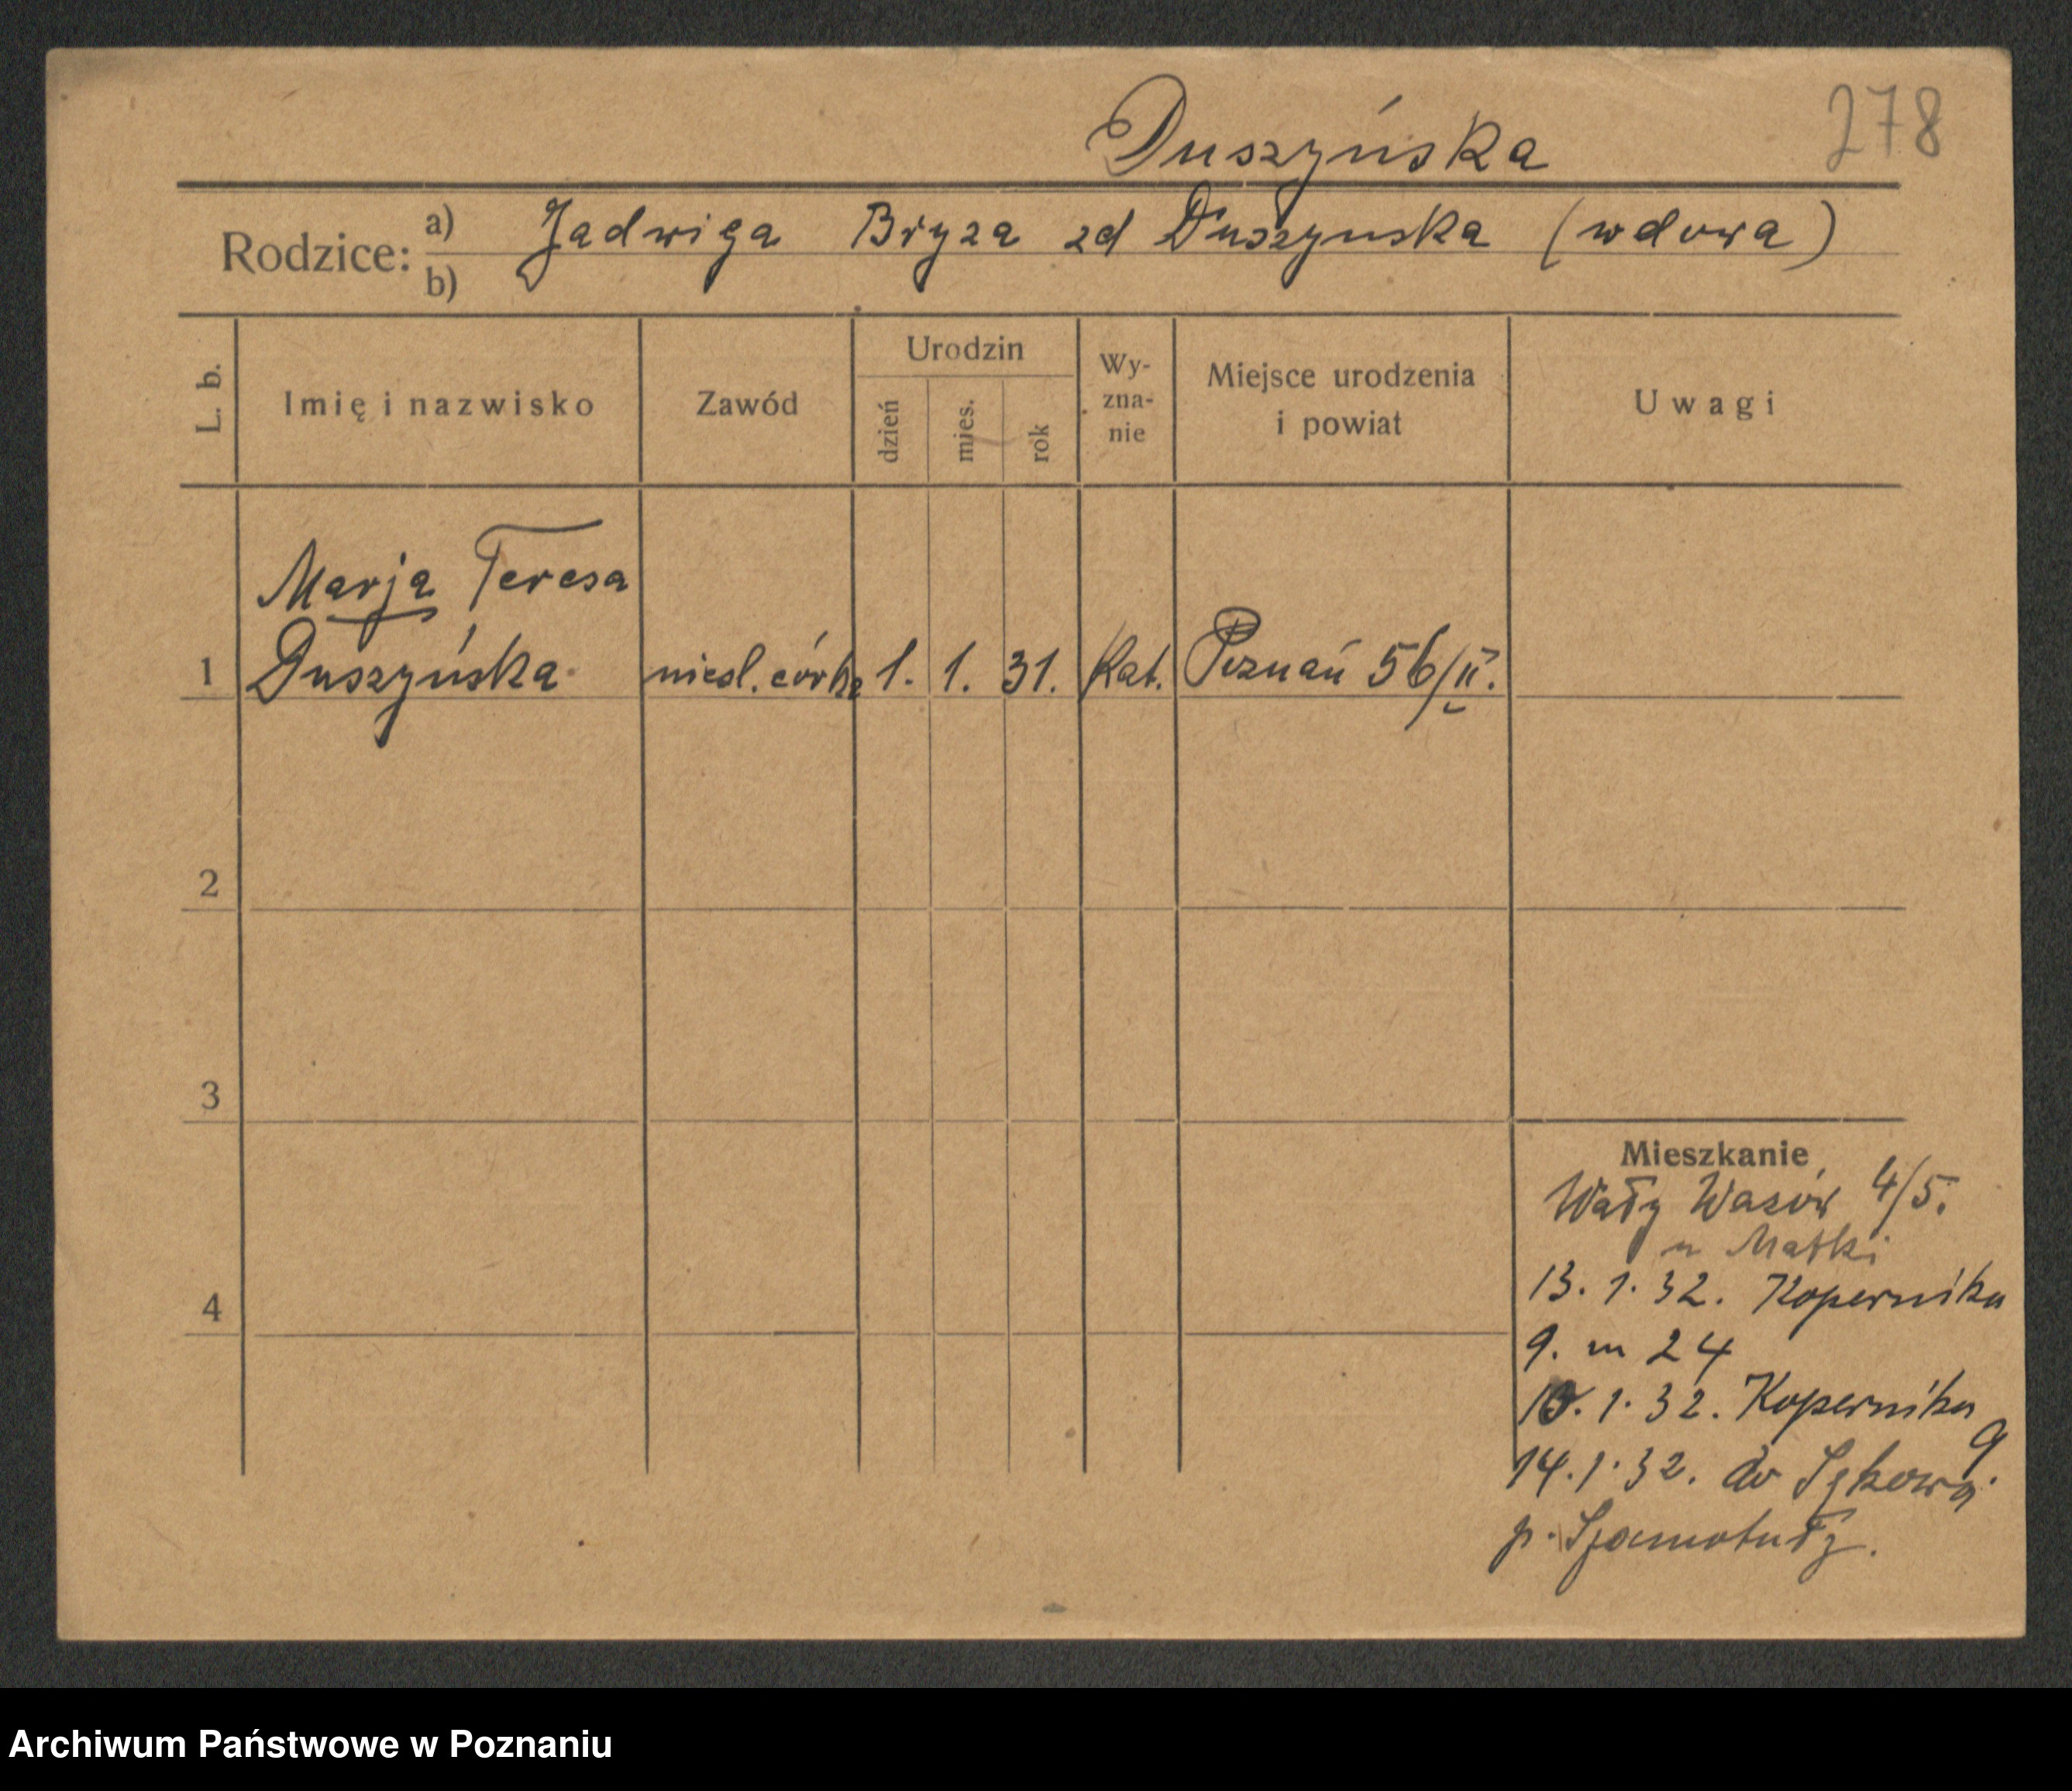 Duszyńska
278
Rodzice: a) Jadwiga Bryza zd Duszynska (wdowa)
b)
L. b.
Imię i nazwisko
Zawód
Urodzin
dzień
mies.
rok
Wy-
zna-
nie
Miejsce urodzenia
i powiat
Uwagi
Marja Teresa
1 Duszyńska niesl. córka 1. 1. 31. Kat. Poznań 56/II.
2
3
4
Mieszkanie
Wały Wazów 4/5.
u Matki
13. 1. 32. Kopernika
9. m 24
1. 32. Kopernika
9
14. 1. 32. do
p. Szamotuły.
Archiwum Państwowe w Poznaniu